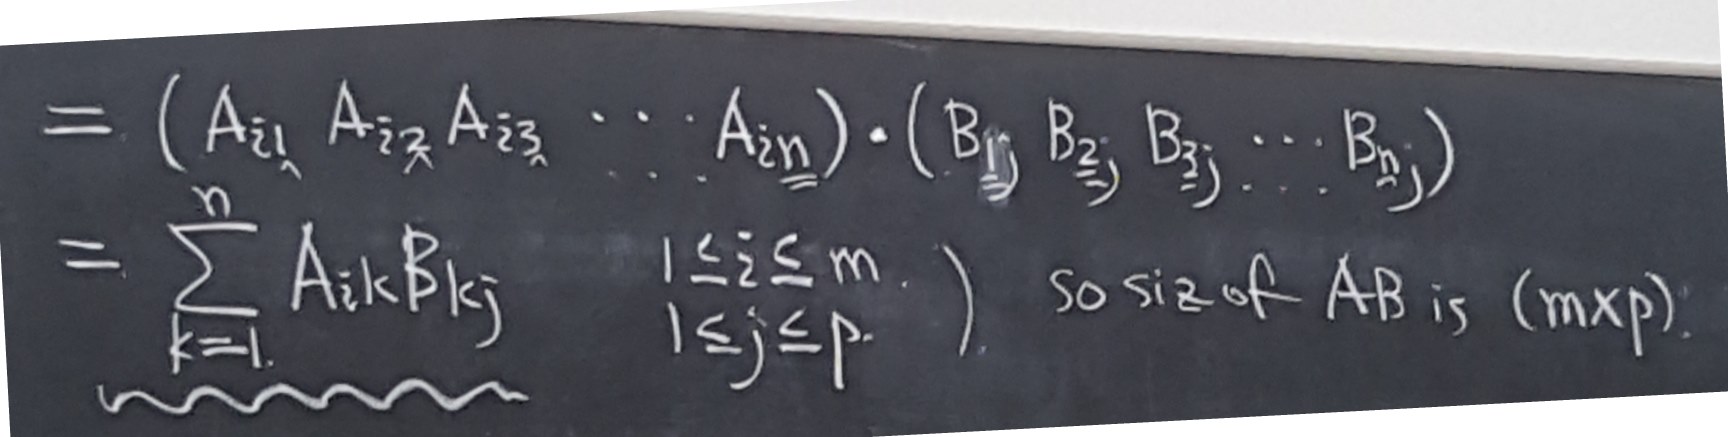 = (A_{i1} A_{i2} A_{i3} ··· A_{in}) · (B_{1j} B_{2j} B_{3j} ··· B_{nj})
= \sum_{k=1}^{n} A_{ik} B_{kj} 1 ≤ i ≤ m. 1 ≤ j ≤ p. ) so siz of AB is (m×p).